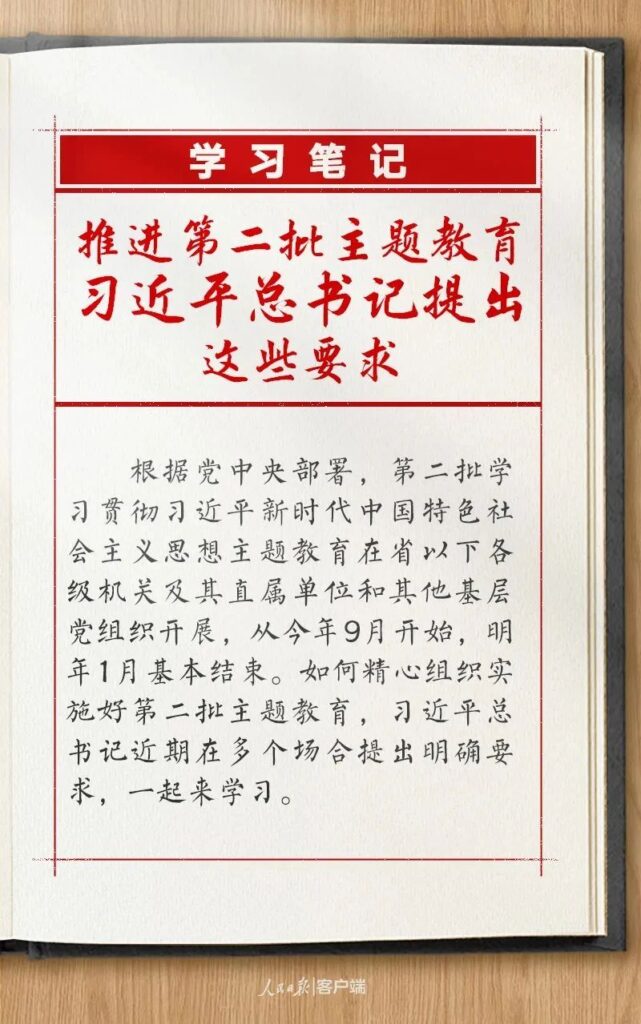 学习笔记
推进第二批主题教育
习近平总书记提出
这些要求
根据党中央部署，第二批学
习贯彻习近平新时代中国特色社
会主义思想主题教育在省以下各
级机关及其直属单位和其他基层
党组织开展，从今年9月开始，明
年1月基本结束。如何精心组织实
施好第二批主题教育，习近平总
书记近期在多个场合提出明确要
求，一起来学习。
人民日报|客户端